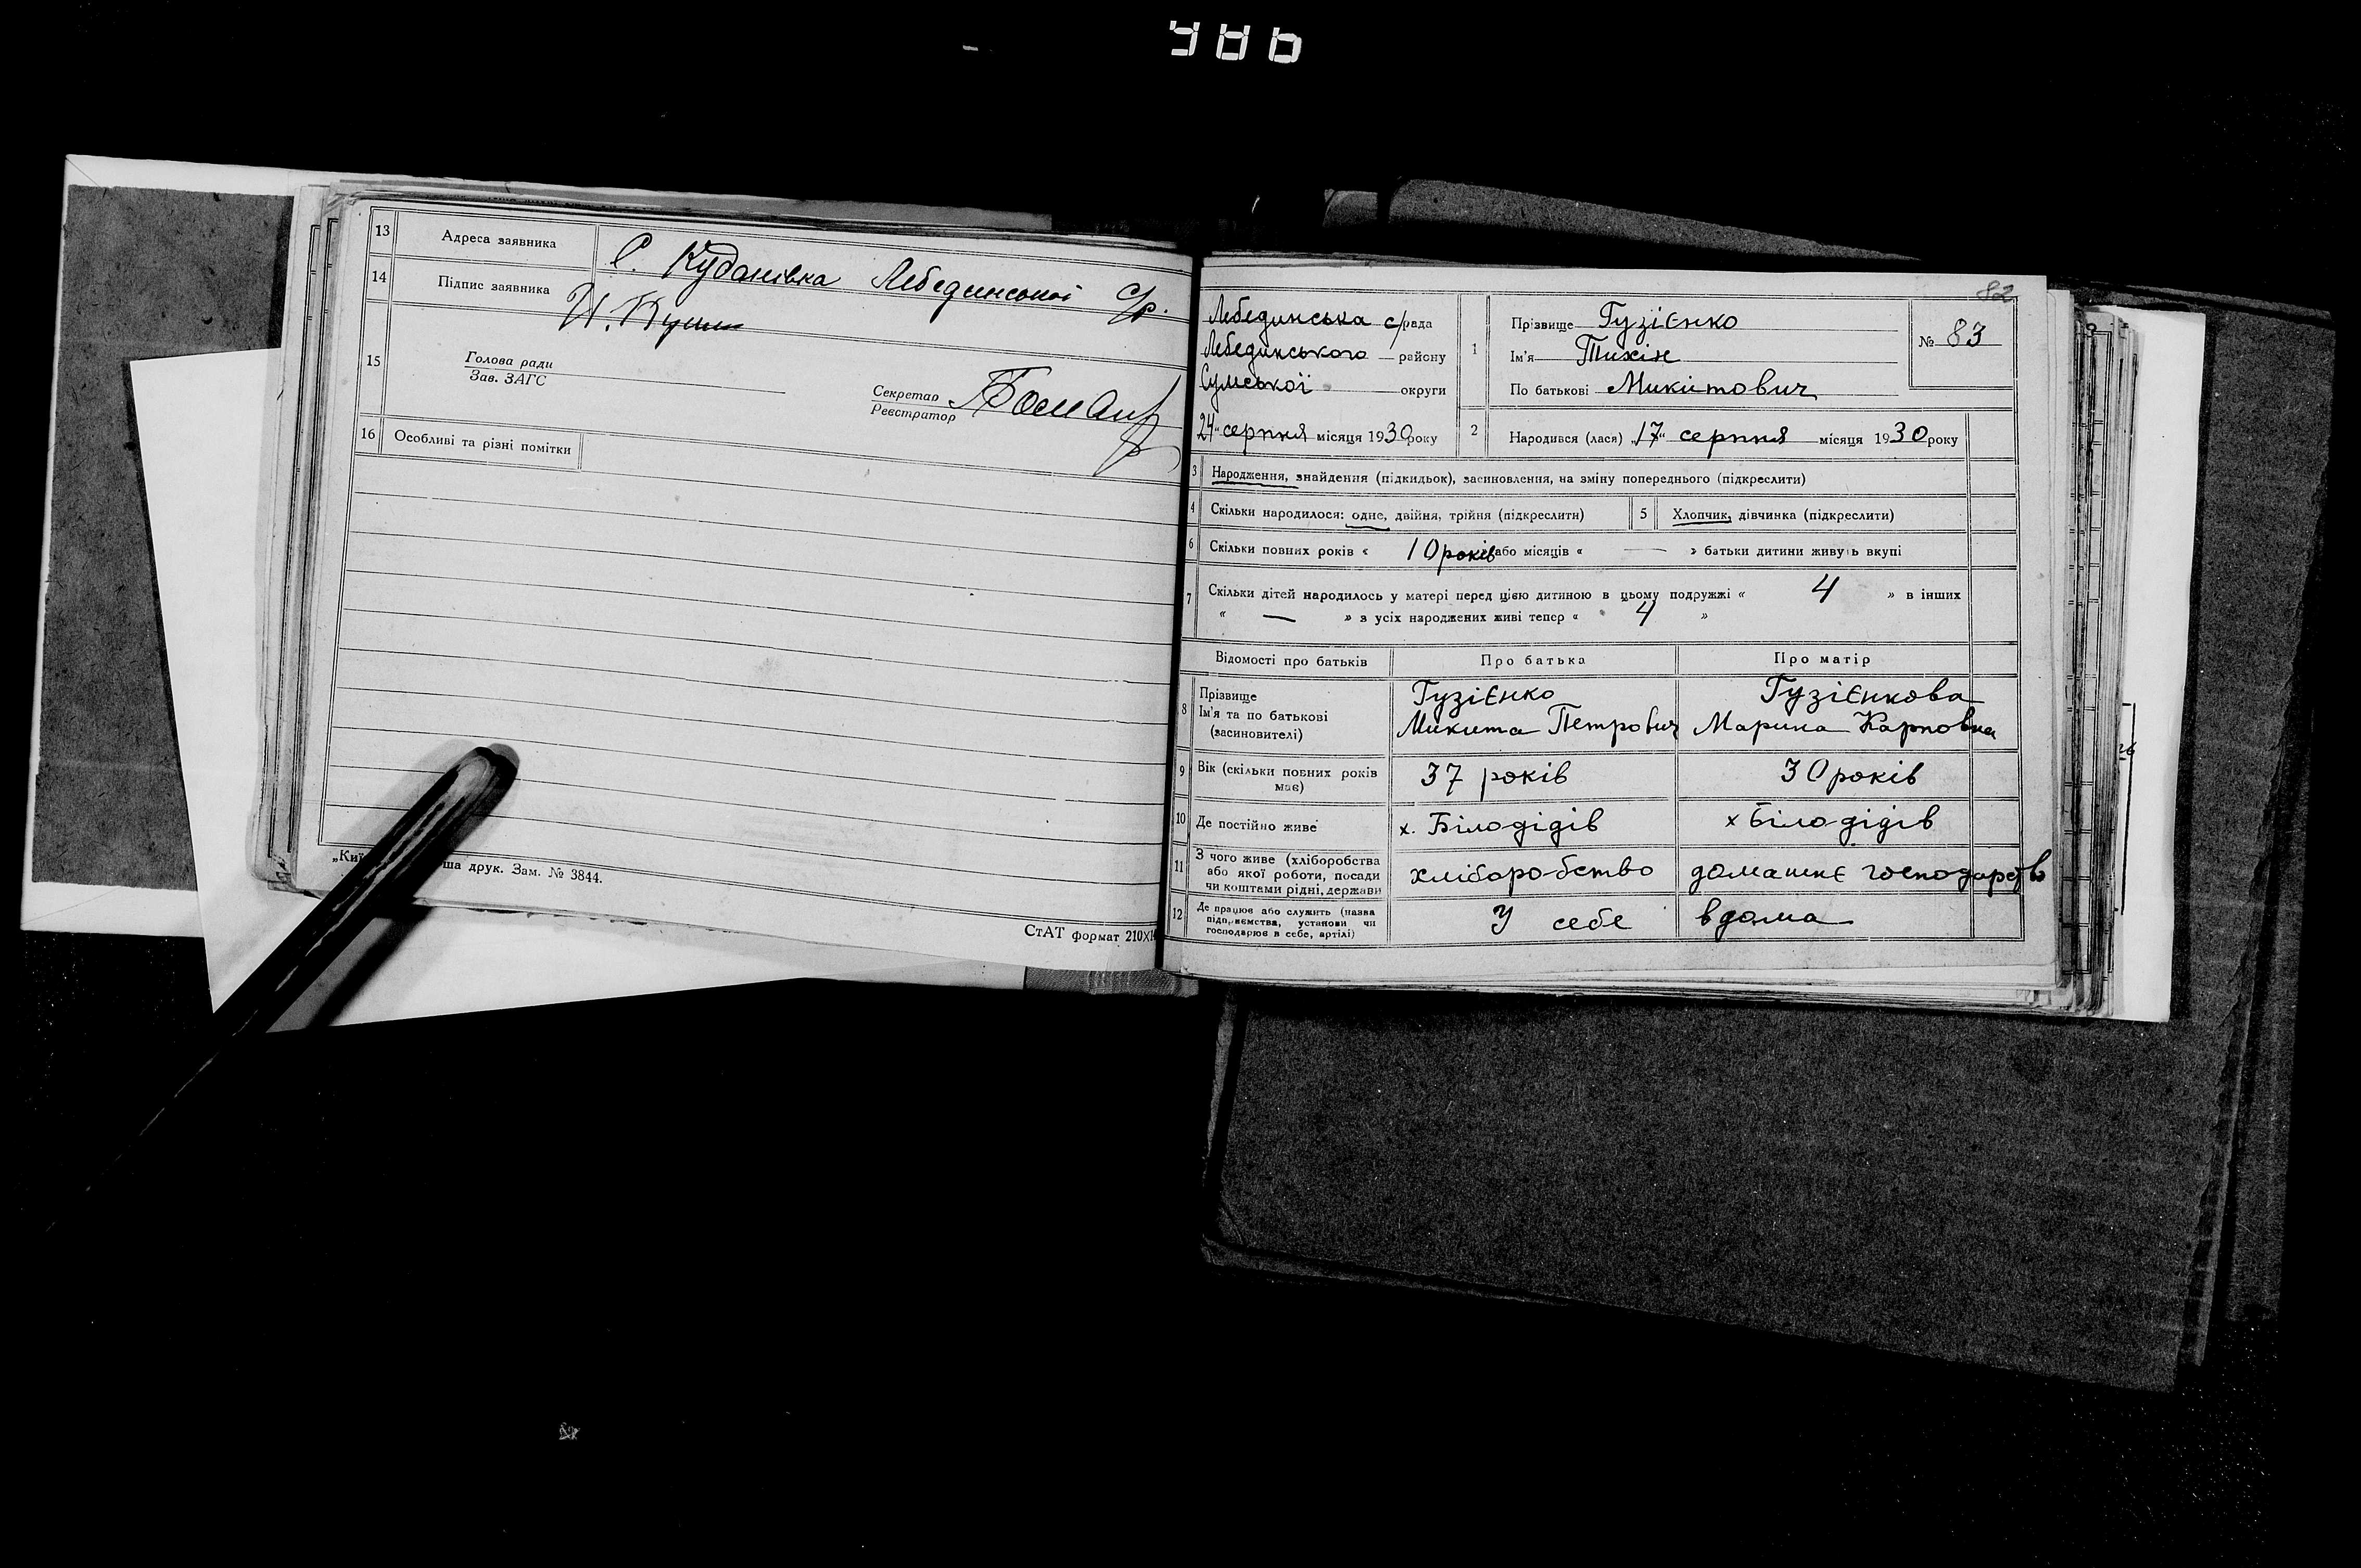 986
13 Адреса заявника С. Кудановка Лебединської с/р.
14 Підпис заявника
15 Голова ради
Зав. ЗАГС
Секретар
Реєстратор
16 Особливі та різні помітки
ша друк. Зам. № 3844.
СтАТ формат 210X
82
Лебединська с/рада
Лебединського району
Сумської округи
24 серпня місяця 1930 року
1 Прізвище Гузієнко
Ім'я Тихін
По батькові Микитович
№ 83
2 Народився (лася) „17“ серпня місяця 1930 року
3 Народження, знайдення (підкидьок), засиновлення, на зміну попереднього (підкреслити)
4 Скільки народилося: одне, двійня, трійня (підкреслити)
5 Хлопчик, дівчинка (підкреслити)
6 Скільки повних років « 10 років або місяців « — » батьки дитини живуть вкупі
7 Скільки дітей народилось у матері перед цією дитиною в цьому подружжі « 4 » в інших
« — » з усіх народжених живі тепер « 4 »
Відомості про батьків Про батька Про матір
8 Прізвище Гузієнко Гузієнкова
Ім'я та по батькові Микита Петрович Марина Карповна
(засиновителі)
9 Вік (скільки повних років має) 37 років 30 років
10 Де постійно живе х. Білодідів х Білодідів
11 З чого живе (хліборобства
або якої роботи, посади хліборобство домашнє господарство
чи коштами рідні, держави
12 Де працює або служить (назва
підприємства, установи чи У себе вдома
господарює в себе, артілі)